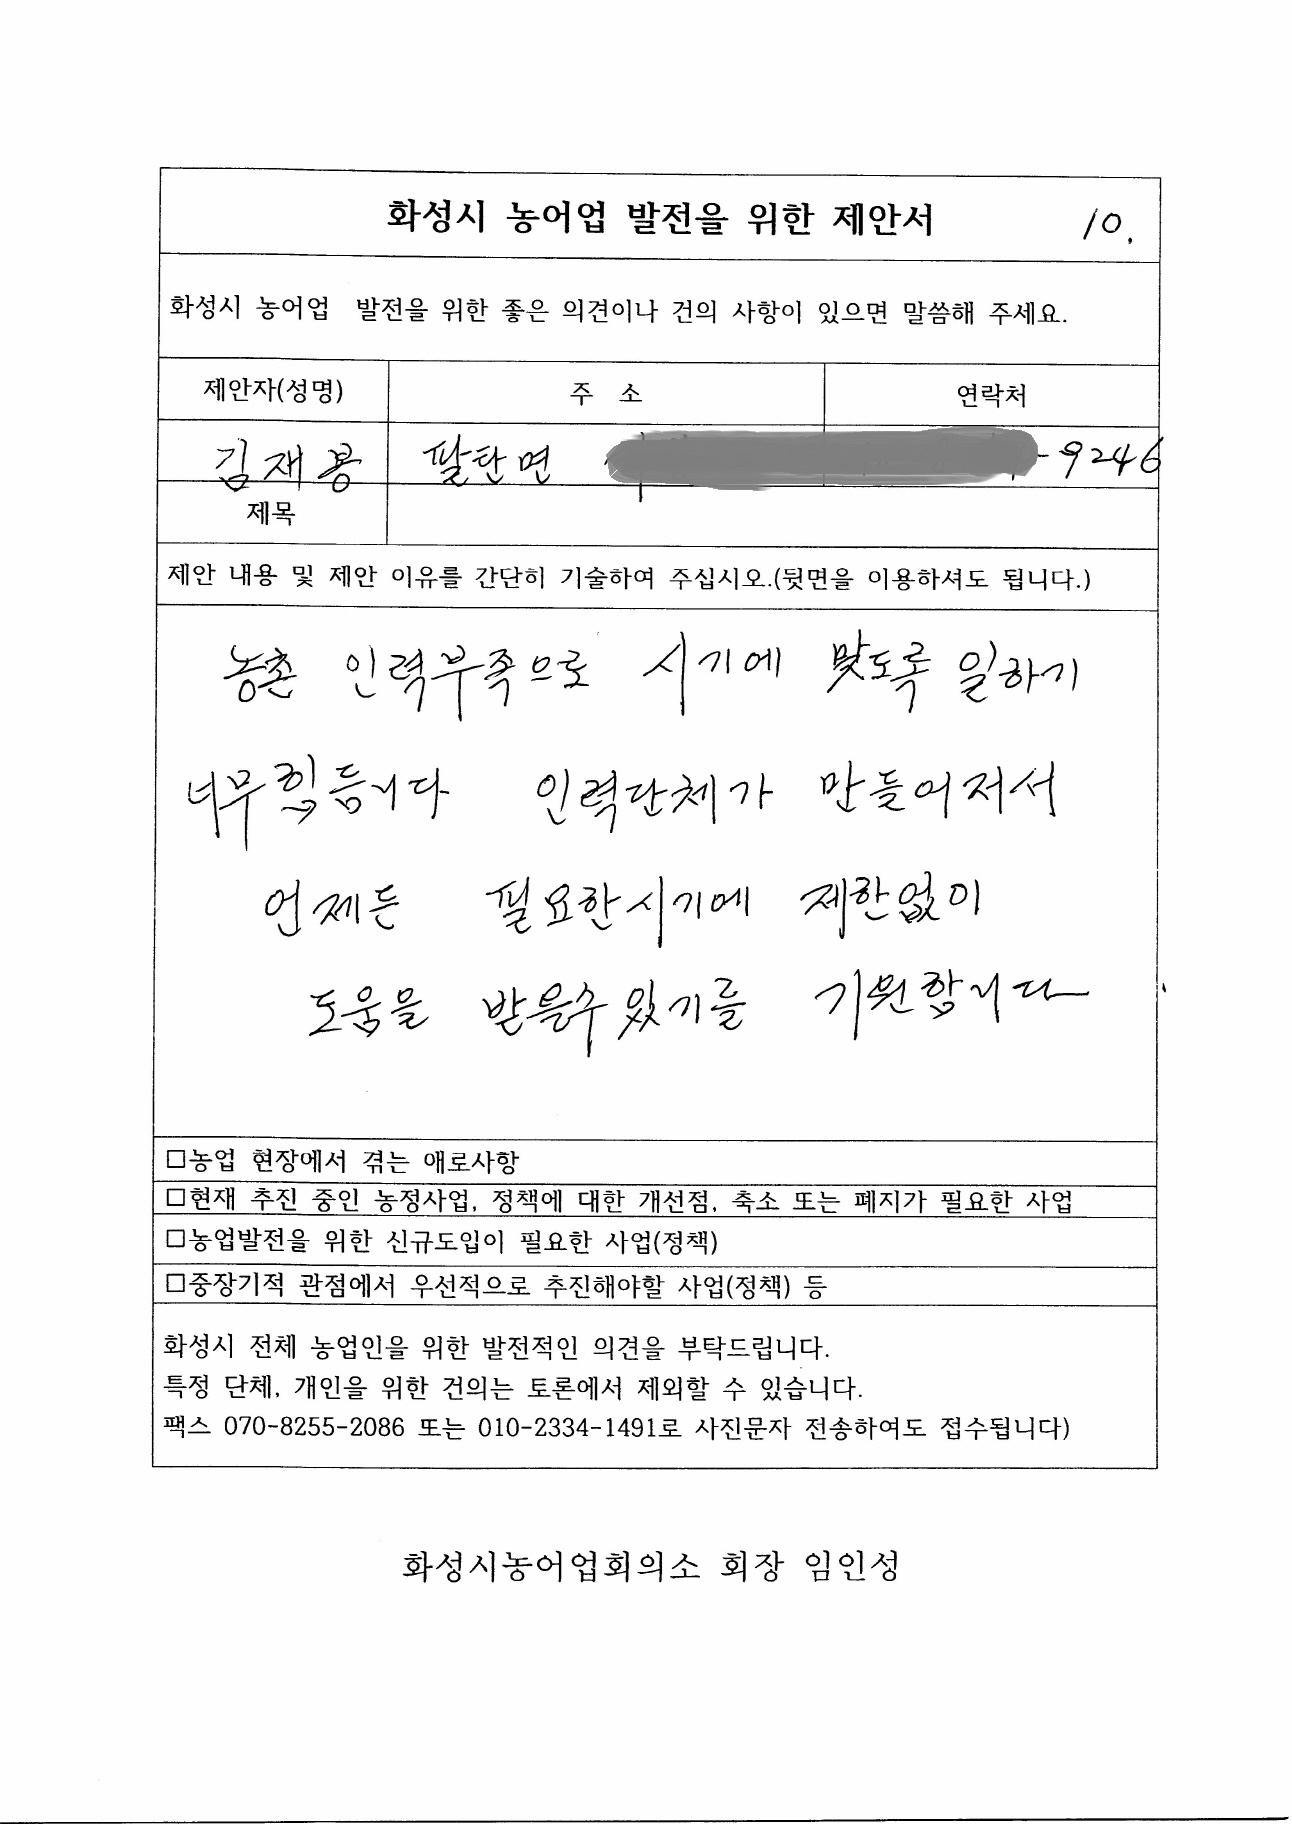 화성시 농어업 발전을 위한 제안서 10.
화성시 농어업 발전을 위한 좋은 의견이나 건의 사항이 있으면 말씀해 주세요.
제안자(성명) 주 소 연락처
김재봉 팔탄면 -9246
제목
제안 내용 및 제안 이유를 간단히 기술하여 주십시오.(뒷면을 이용하셔도 됩니다.)
농촌 인력부족으로 시기에 맞도록 일하기
너무 힘듭니다 인력단체가 만들어저서
언제든 필요한시기에 제한없이
도움을 받을수 있기를 기원합니다
□농업 현장에서 겪는 애로사항
□현재 추진 중인 농정사업, 정책에 대한 개선점, 축소 또는 폐지가 필요한 사업
□농업발전을 위한 신규도입이 필요한 사업(정책)
□중장기적 관점에서 우선적으로 추진해야할 사업(정책) 등
화성시 전체 농업인을 위한 발전적인 의견을 부탁드립니다.
특정 단체, 개인을 위한 건의는 토론에서 제외할 수 있습니다.
팩스 070-8255-2086 또는 010-2334-1491로 사진문자 전송하여도 접수됩니다)
화성시농어업회의소 회장 임인성